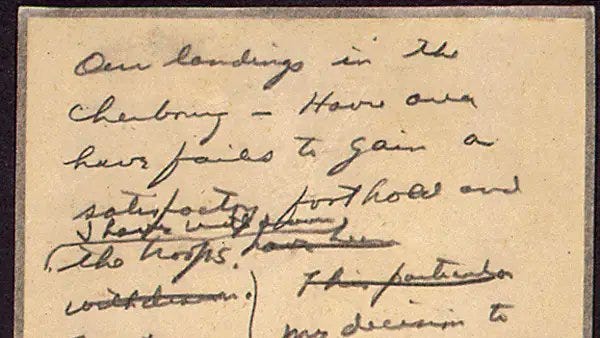 Our landings in the
Cherbourg - Havre area
have failed to gain a
satisfactory foothold and
I have withdrawn
the troops. have been
withdrawn. This particular
my decision to